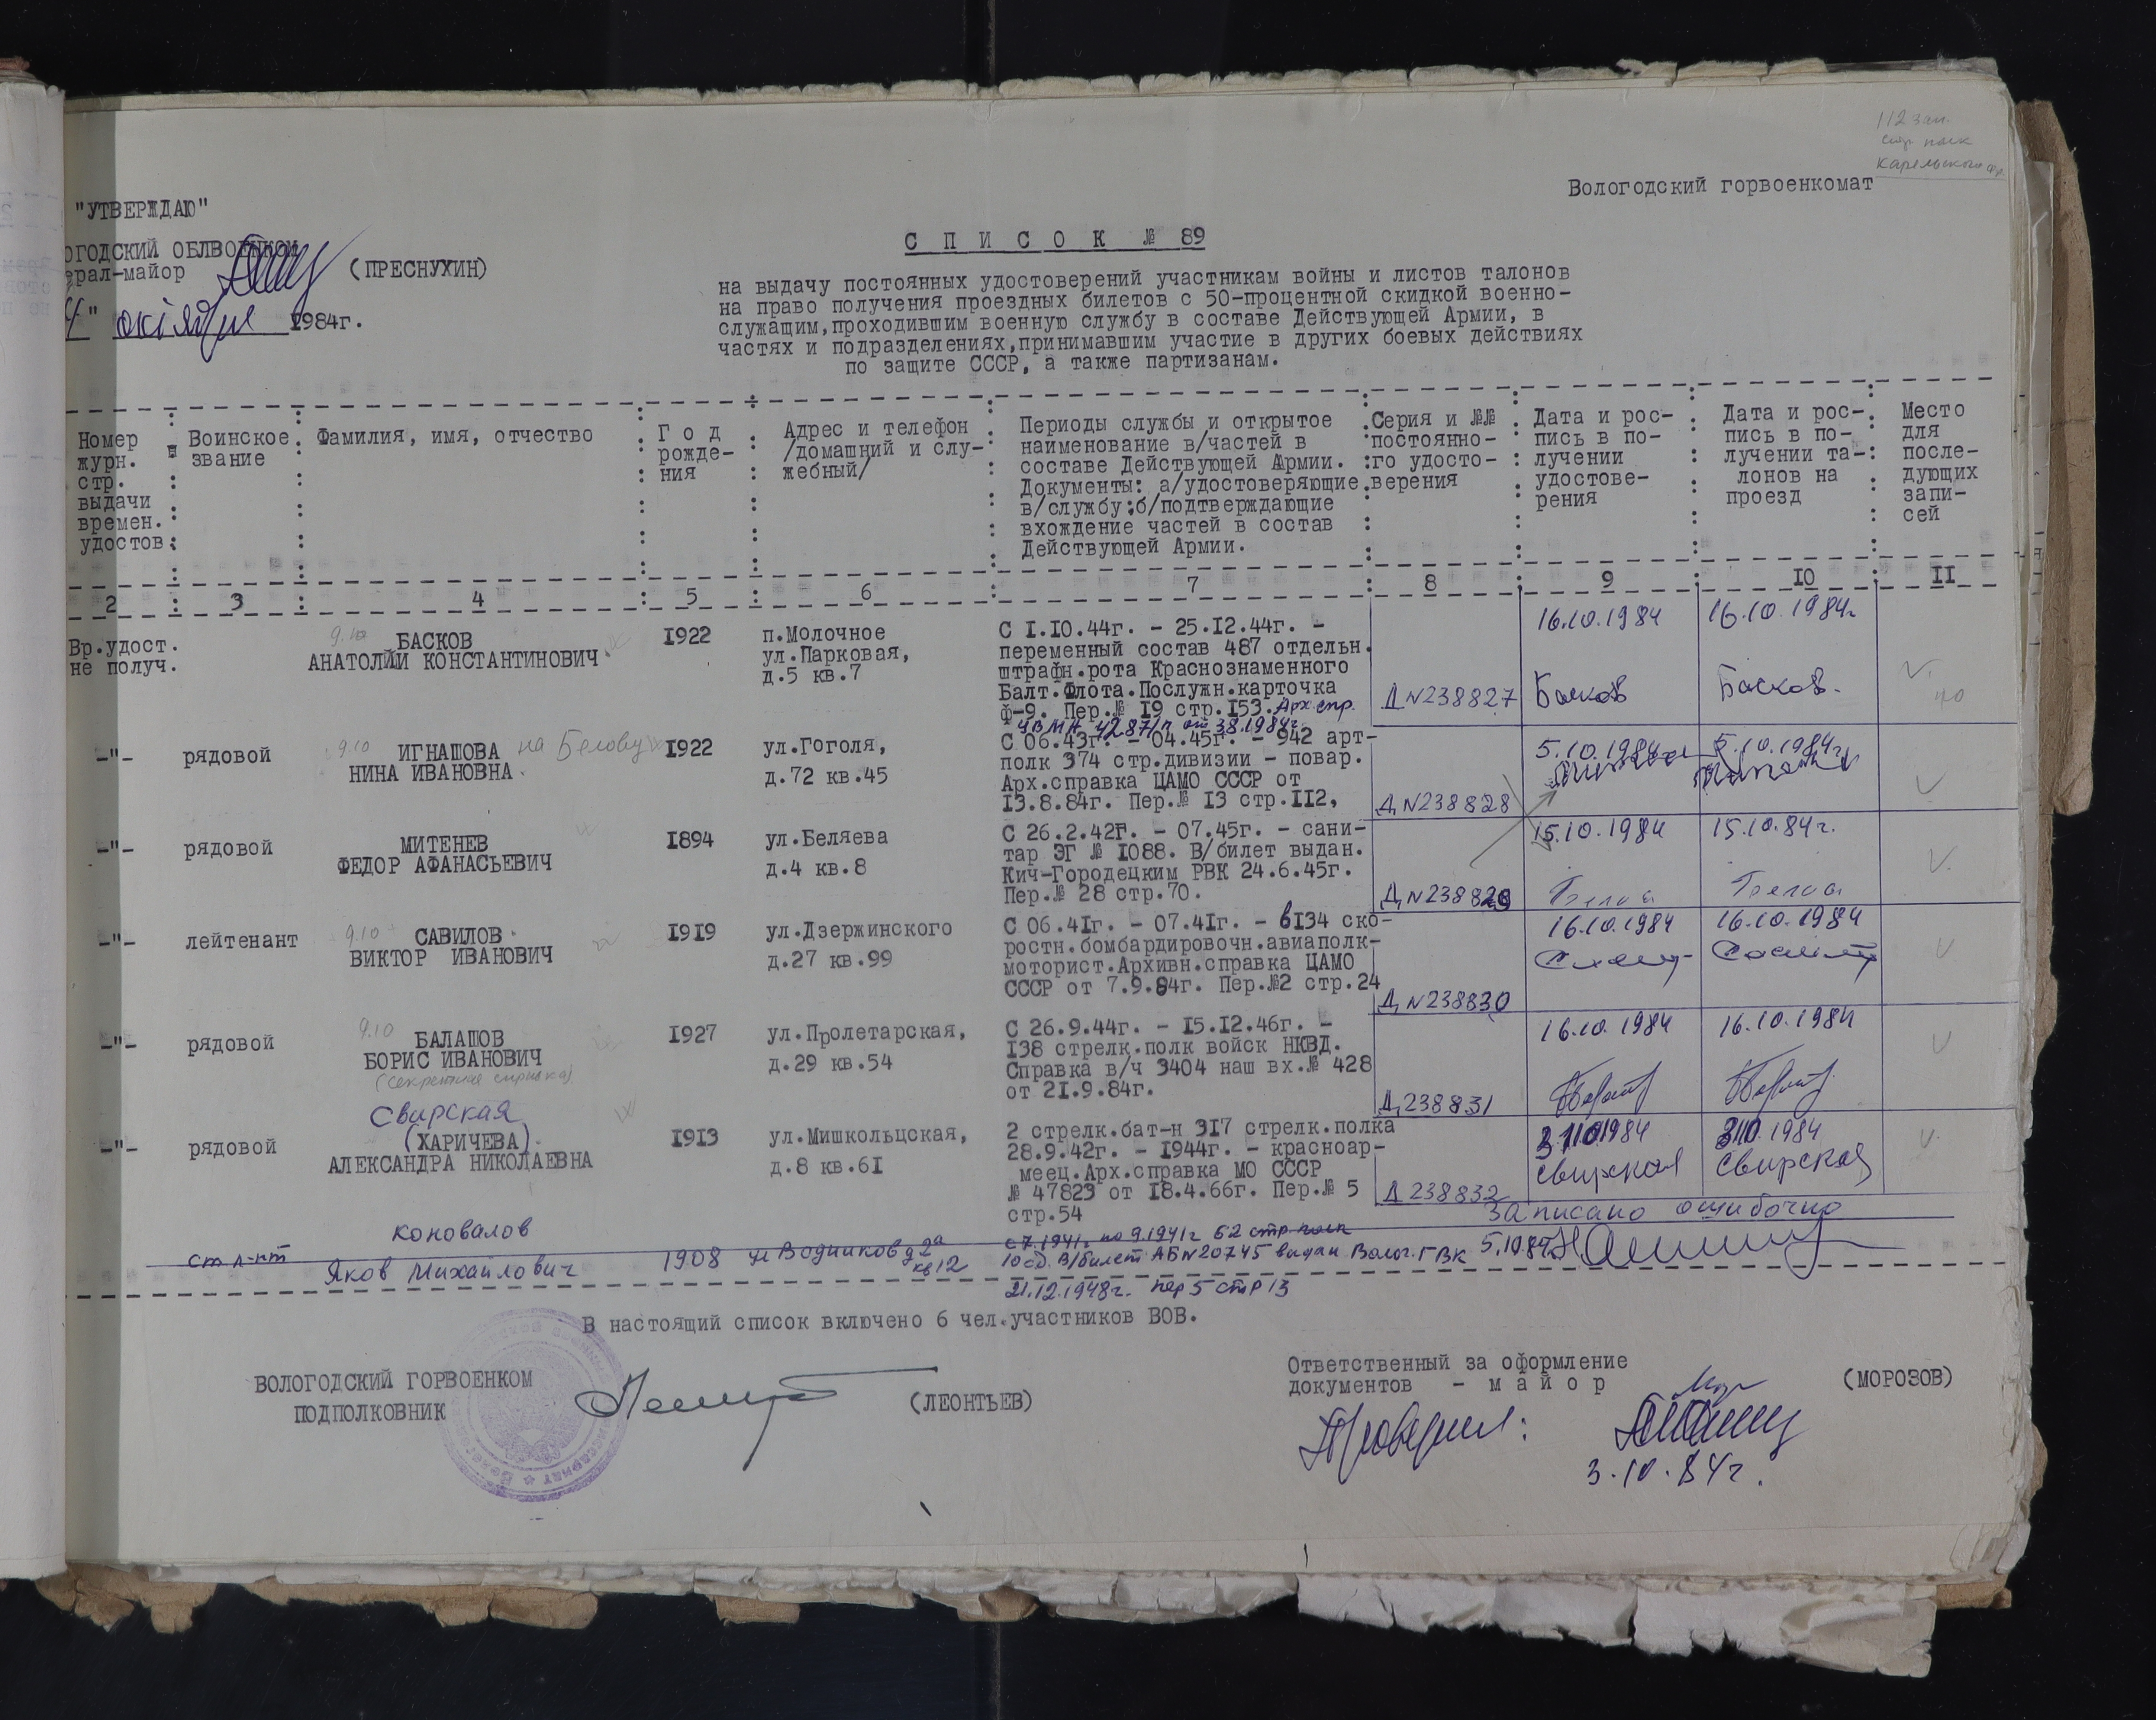 112 зап.
стр. полк
Карельского фр.
Вологодский горвоенкомат
"УТВЕРЖДАЮ"
ОГОДСКИЙ ОБЛВОЕНКОМ
ерал-майор (ПРЕСНУХИН)
4" октября 1984г.
С П И С О К № 89
на выдачу постоянных удостоверений участникам войны и листов талонов
на право получения проездных билетов с 50-процентной скидкой военно-
служащим,проходившим военную службу в составе Действующей Армии, в
частях и подразделениях,принимавшим участие в других боевых действиях
по защите СССР, а также партизанам.
Номер
журн.
стр.
выдачи
времен.
удостов.
Воинское
звание
Фамилия, имя, отчество
Г о д
рожде-
ния
Адрес и телефон
/домашний и слу-
жебный/
Периоды службы и открытое
наименование в/частей в
составе Действующей Армии.
Документы: а/удостоверяющие
в/службу;б/подтверждающие
вхождение частей в состав
Действующей Армии.
Серия и №№
постоянно-
го удосто-
верения
Дата и рос-
пись в по-
лучении
удостове-
рения
Дата и рос-
пись в по-
лучении та-
лонов на
проезд
Место
для
после-
дующих
запи-
сей
2 3 4 5 6 7 8 9 10 II
Вр.удост.
не получ.
9.10
БАСКОВ
АНАТОЛИЙ КОНСТАНТИНОВИЧ
1922
п.Молочное
ул.Парковая,
д.5 кв.7
С I.I0.44г. - 25.I2.44г. -
переменный состав 487 отдельн.
штрафн.рота Краснознаменного
Балт.Флота.Послужн.карточка
ф-9. Пер.№ I9 стр.I53. Арх.спр.
Д N238827
16.10.1984
Басков
16.10.1984г
Басков.
-"- рядовой
9.10
ИГНАШОВА на Белову
НИНА ИВАНОВНА
I922
ул.Гоголя,
д.72 кв.45
С 06.43г. - 04.45г. - 942 арт-
полк 374 стр.дивизии - повар.
Арх.справка ЦАМО СССР от
I3.8.84г. Пер.№ I3 стр.II2,
Д N238828
5.10.1984
5.10.1984г
-"- рядовой
МИТЕНЕВ
ФЕДОР АФАНАСЬЕВИЧ
I894
ул.Беляева
д.4 кв.8
С 26.2.42г. - 07.45г. - сани-
тар ЭГ № I088. В/билет выдан.
Кич-Городецким РВК 24.6.45г.
Пер.№ 28 стр.70.
Д N238829
15.10.1984
15.10.84г.
-"- лейтенант
9.10
САВИЛОВ
ВИКТОР ИВАНОВИЧ
I9I9
ул.Дзержинского
д.27 кв.99
С 06.4Iг. - 07.4Iг. - 6I34 ско-
ростн.бомбардировочн.авиаполк-
моторист.Архивн.справка ЦАМО
СССР от 7.9.84г. Пер.№2 стр.24
Д N238830
16.10.1984
16.10.1984
-"- рядовой
9.10
БАЛАШОВ
БОРИС ИВАНОВИЧ
(секретная справка)
I927
ул.Пролетарская,
д.29 кв.54
С 26.9.44г. - I5.I2.46г. -
I38 стрелк.полк войск НКВД.
Справка в/ч 3404 наш вх.№ 428
от 2I.9.84г.
Д 238831
16.10.1984
16.10.1984
Свирская
-"- рядовой
(ХАРИЧЕВА)
АЛЕКСАНДРА НИКОЛАЕВНА
I9I3
ул.Мишкольцская,
д.8 кв.6I
2 стрелк.бат-н 3I7 стрелк.полка
28.9.42г. - I944г. - красноар-
меец.Арх.справка МО СССР
№ 47823 от I8.4.66г. Пер.№ 5
стр.54
Д 238832
Свирская
Свирская
Записано ошибочно
ст л-нт
Коновалов
Яков Михайлович
1908
ул Водников д 2а
кв 12
с 7.1941г по 9.1941г 62 стр полк
10 сд. В/билет АБN20745 выдан Волог. ГВК
21.12.1948г. пер 5 стр 13
5.10.84г
В настоящий список включено 6 чел.участников ВОВ.
ВОЛОГОДСКИЙ ГОРВОЕНКОМ
ПОДПОЛКОВНИК (ЛЕОНТЬЕВ)
Ответственный за оформление
документов - м а й о р (МОРОЗОВ)
Проверил:
3.10.84г.